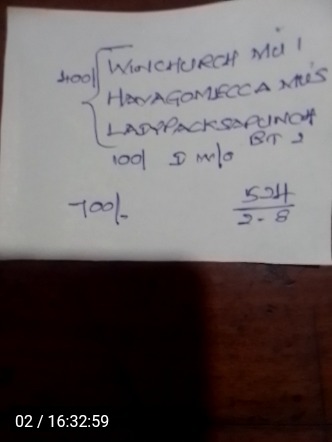 400/ WINCHURCH MU 1
HAYAGOMECCA MUS
LADYPACKSAPUNCH
BT 2
100/ D M/O
700/-
524
2-8
02 / 16:32:59